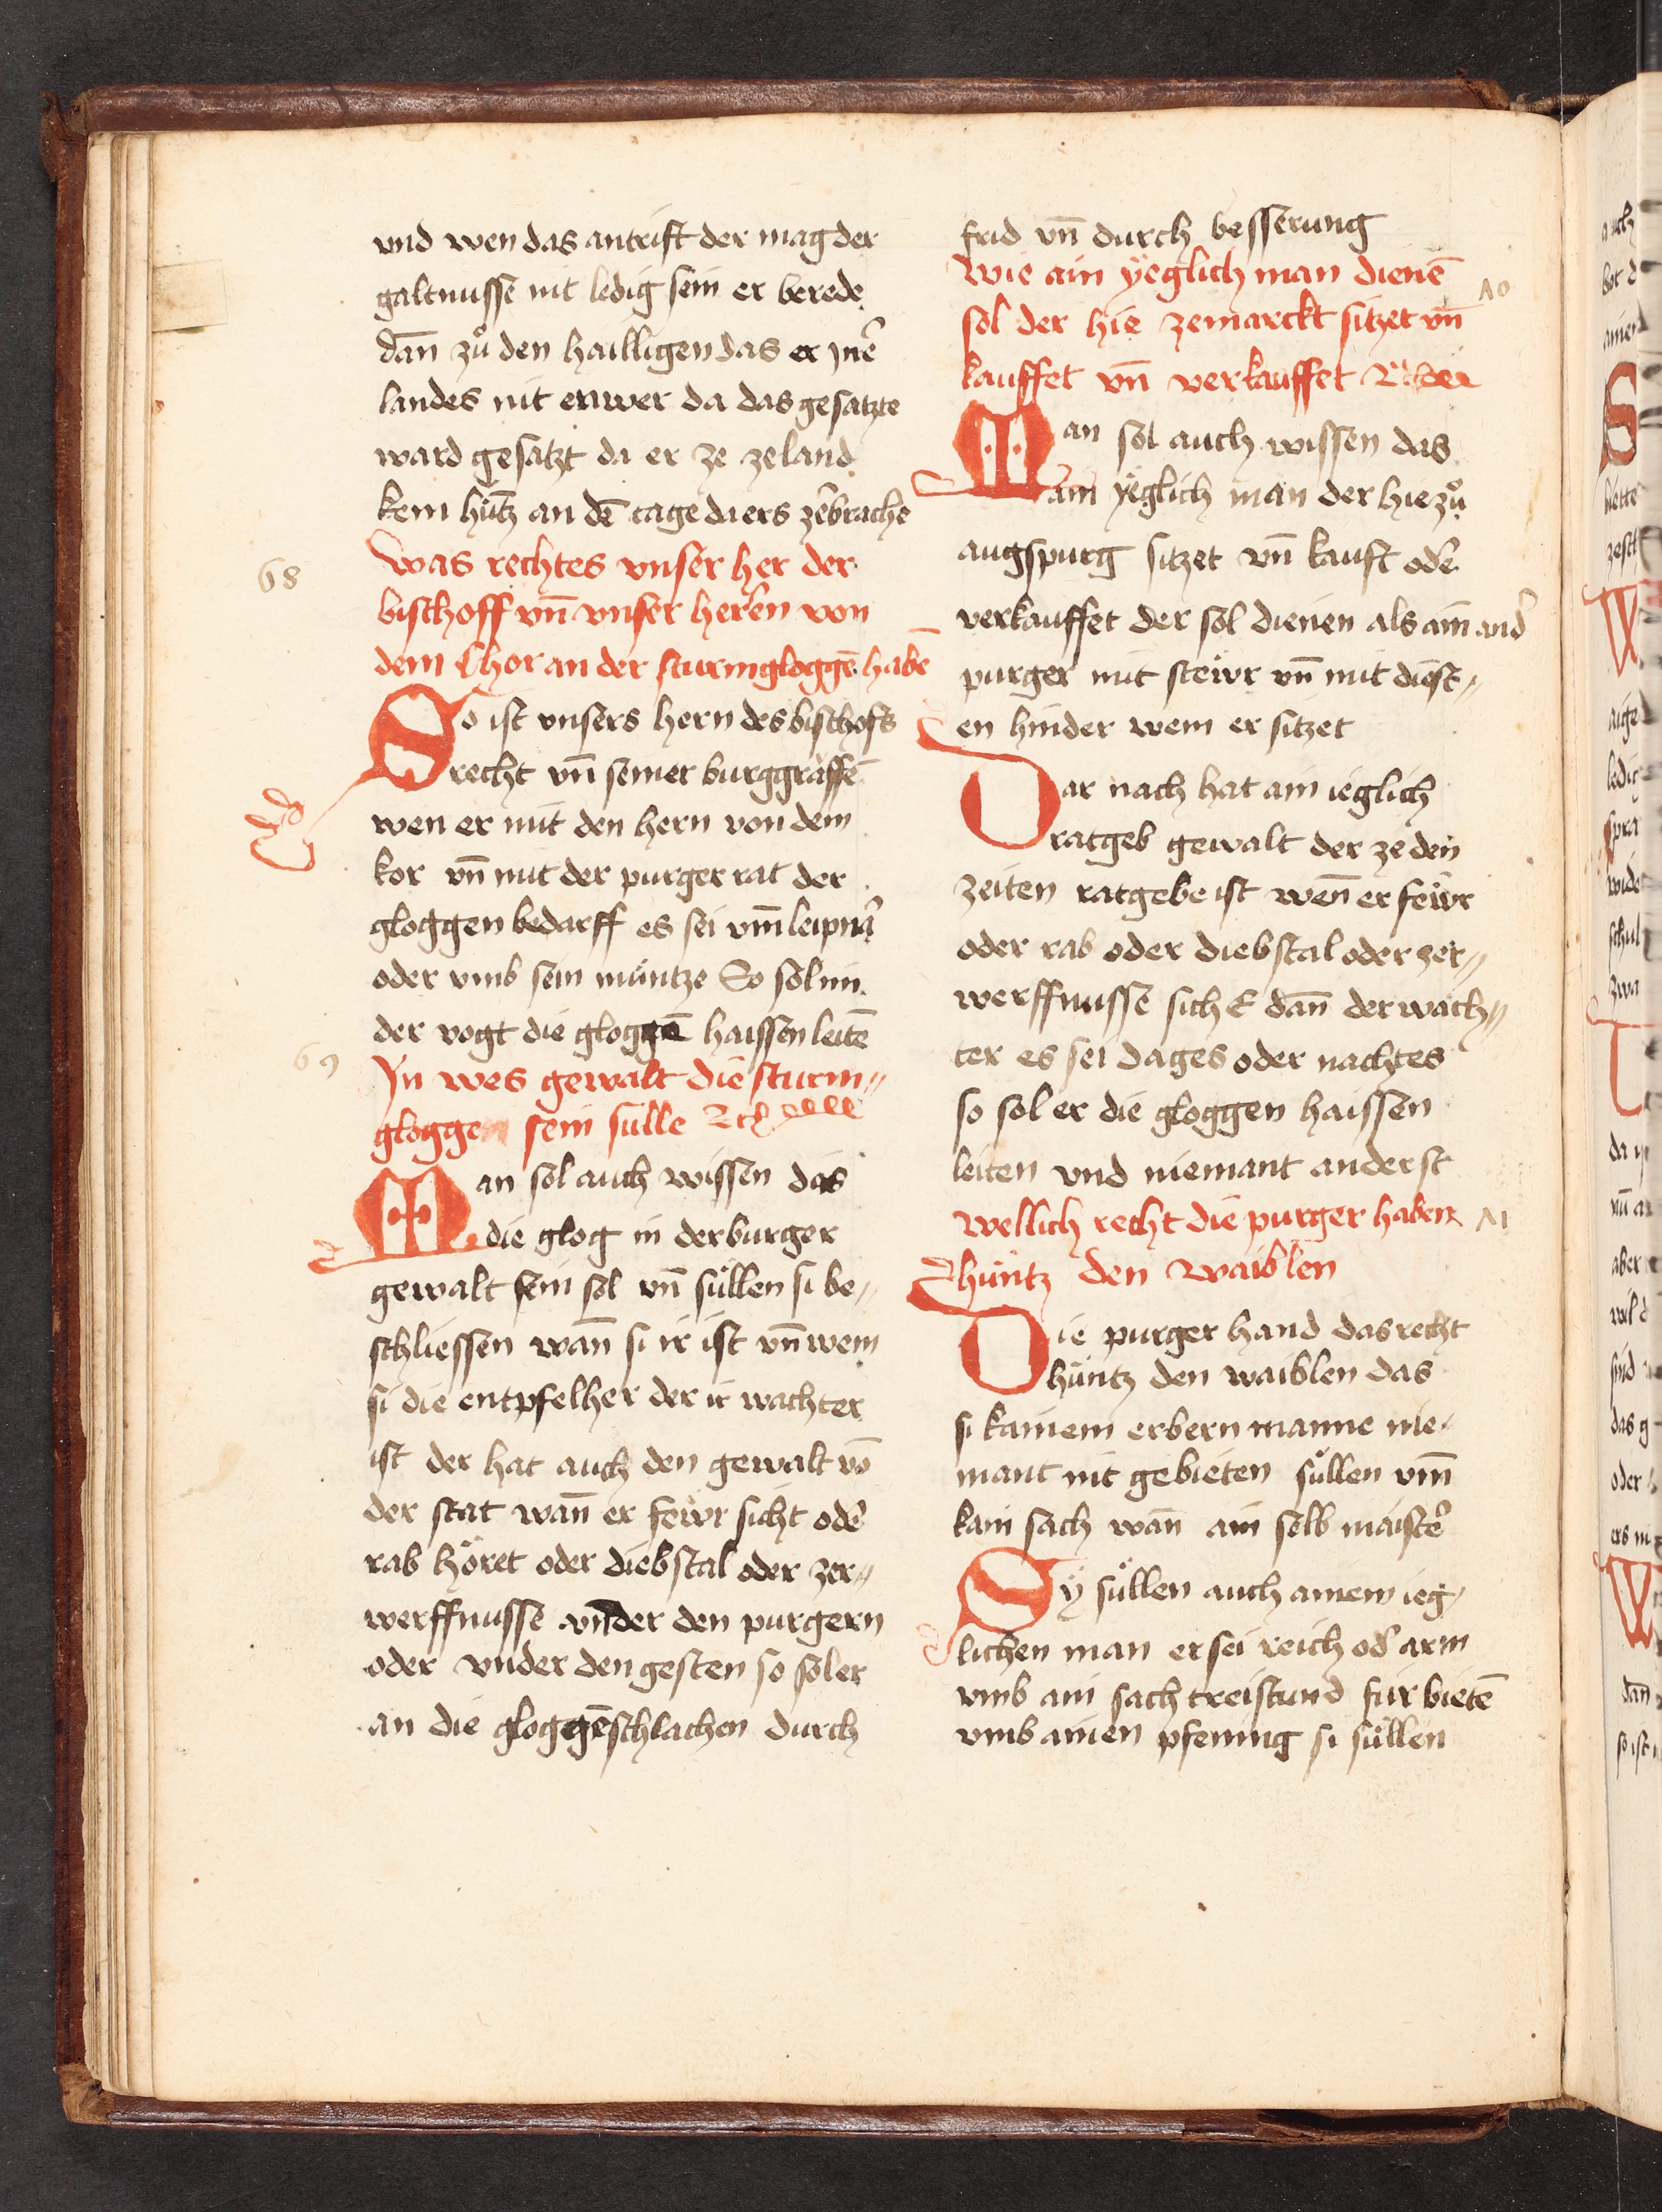 vnd wen das antrift der mag der
galtnusse nit ledig sein er berede
dan̄ zů den hailligen das er jnē
landes nit enwer da das gesatzte
ward gesatzt da er ze zeland
kem hůtz an dē tage da ers zebrache
68
Was rechtes vnser her der
bischoff vn̄ vnser heren von
dem Chor an der sturmgloggē habē
So ist vnsers hern des bischofs
recht vn̄ seiner burggraffē
wen er mit den hern von dem
kor vn̄ mit der purger rat der
gloggen bedarff es sei vm̄ leipnar
oder vmb sein müntze So sol im
der vogt die gloggē haissen leitē
69
Jn wes gewalt die sturm„
gloggen sein sulle
Man sol auch wissen das
die glog in der burger
gewalt sein sol vn̄ süllen si be„
schliessen wan̄ si ir ist vn̄ wem
si die entpfelher der ir wachter
ist der hat auch den gewalt vō
der stat wan̄ er feẅr sicht oder
rab höret oder diebstal oder zer„
werffnusse vnder den purgern
oder vnder den gesten so sol er
an die gloggē schlachen durch
frid vn̄ durch besserung
Wie ain yeglich man dienē
70
sol der hie zemarckt sitzet vn̄
kauffet vn̄ verkauffet
Man sol auch wissen das
ain yeglich man der hie zů
augspurg sitzet vn̄ kauft oder
verkauffet der sol dienen als ain ander
purger mit steẅr vn̄ mit dienst„
en hinder wem er sitzet
Dar nach hat ain ieglich
ratgeb gewalt der ze den
zeiten ratgebe ist wen̄ er feẅr
oder rab oder diebstal oder zer„
werffnusse sich E dan̄ der wach„
ter es sei dages oder nachtes
so sol er die gloggen haissen
leiten vnd niemant anderst
Wellich recht die purger haben
71
hüntz den waiblen
Die purger hand das recht
hüntz den waiblen das
si kainem erbern manne nie„
mant nit gebieten süllen vm̄
kain sach wan̄ ain selb maister
Sÿ süllen auch ainem ieg„
lichen man er sei reich oder arm
vmb ain sach treistund für bietē
vmb ainen pfening si süllen